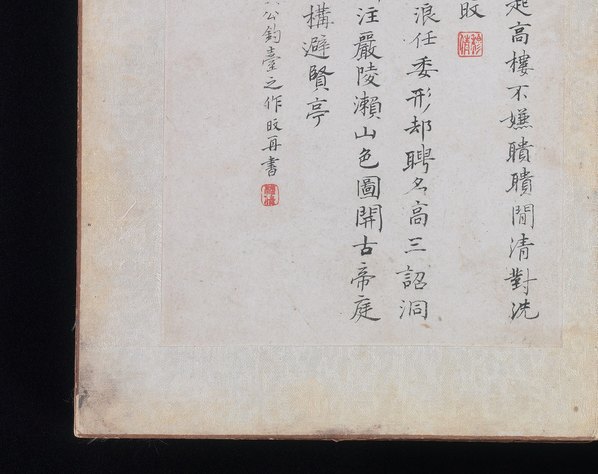 起高樓不嫌聵聵閒清對洗
旼
浪任委形却聘名高三詔洞
注嚴陵瀨山色圖開古帝庭
構避賢亭
公釣臺之作旼再書